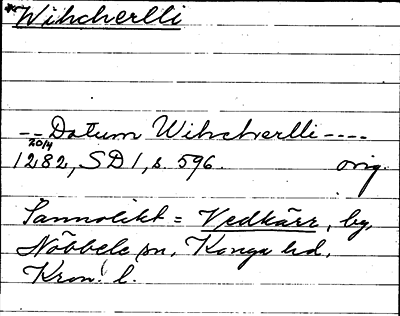 *Wihcherlli
-- Datum Wihcherlli ----
20/4
1282, SD 1, s. 596. orig.
Sannolikt = Vedkärr, by,
Nöbbele sn, Konga hd,
Kron. l.